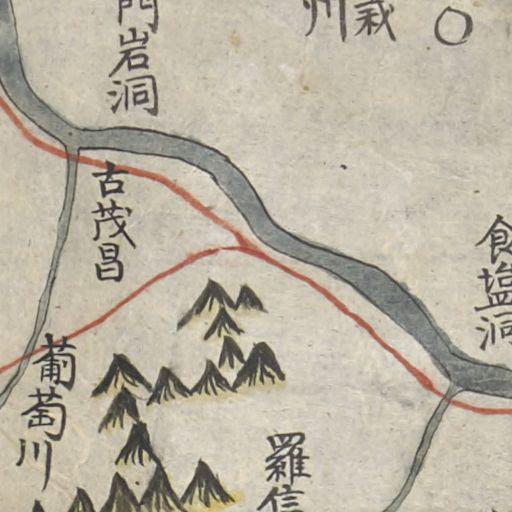 門岩洞
州
栽
古茂昌
食塩洞
葡萄川
羅信